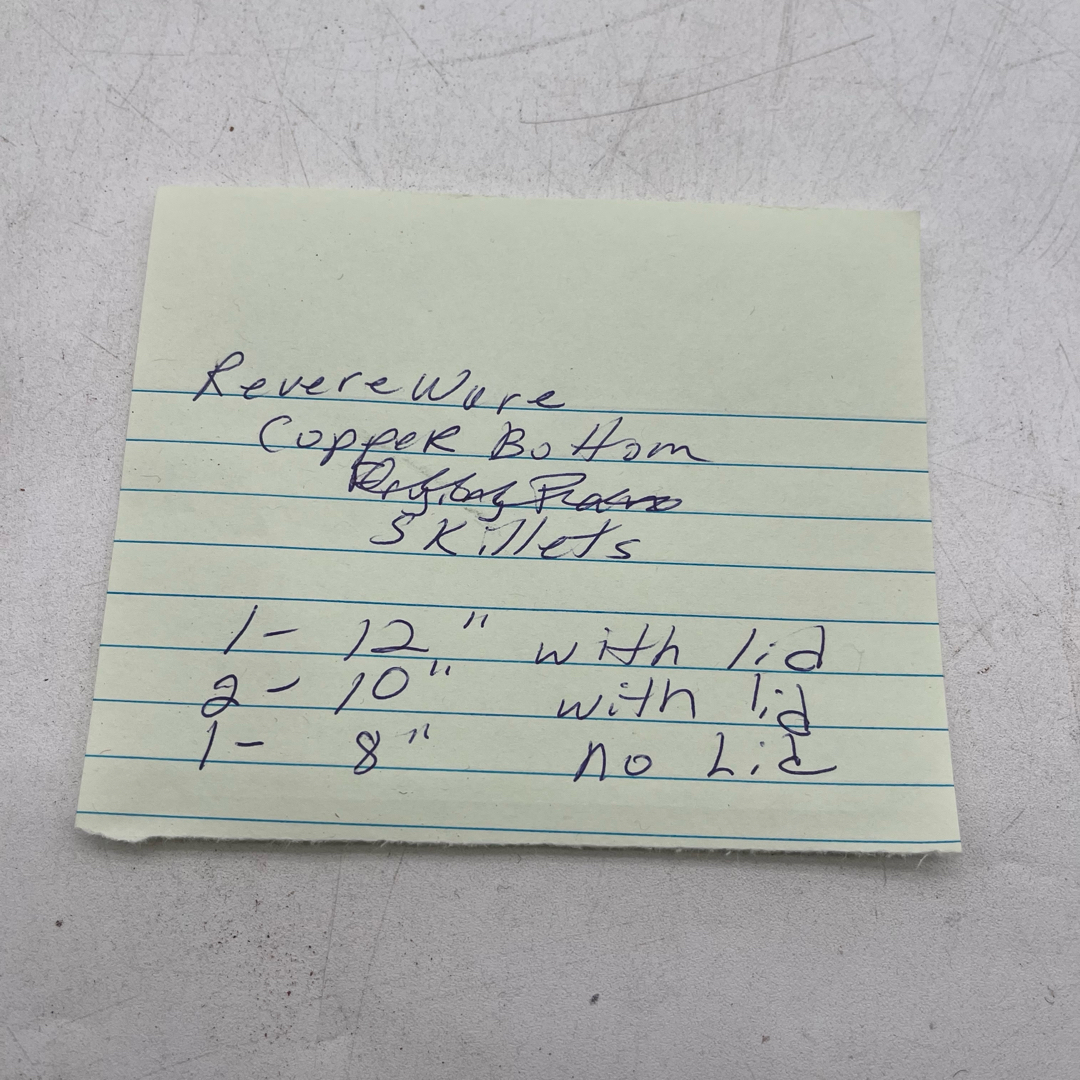 Revere Ware
Copper Bottom
Skillets
1- 12" with lid
2- 10" with lid
1- 8" no Lid